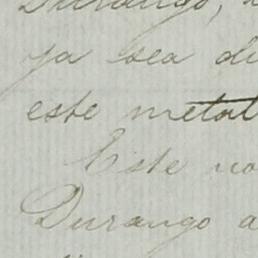 Durango,
ya sea
este metal
Este
Durango a